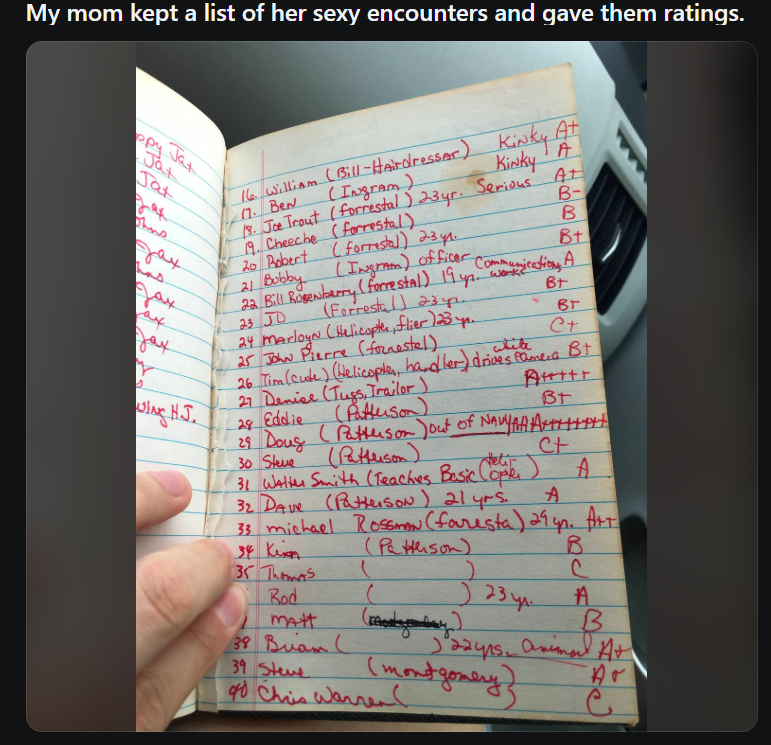 My mom kept a list of her sexy encounters and gave them ratings.
ppy Jax
Jax
Jax
Jax
hns
Jax
ns
Jax
ax
Jax
wing H.J.
16. William (Bill-Hairdressor) Kinky A+
17. Ben (Ingram) Kinky A
18. Joe Trout (forrestal) 23 yr. Serious A+
19. Cheeche (forrestal) B-
20 Robert (forrestal) 23 yr. B
21 Bobby (Ingram) officer B+
22 Bill Rosenberry (forrestal) 19 yr. works Communications, A
23 JD (Forrestal) 23 yr. B+
24 marloyn (Helicopter, flier) 23 yr. B+
25 John Pierre (forrestal) C+
26 Tim (cute) (Helicopter, handler) drives white Camera B+
27 Denise (Tugs, Trailor) A+++++
28 Eddie (Patterson) B+
29 Doug (Patterson) out of NAVY/AA A++++++++
30 Steve (Patterson) C+
31 Walter Smith (Teaches Basic Heli- opter) A
32 Dave (Patterson) 21 yrs. A
33 michael Rossman (foresta) 29 yr. A++
34 (Patterson) B
35 Thomas ( ) C
Rod ( ) 23 yr. A
Matt ( ) B
38 Brian ( ) 22 yrs. animal A+
39 Steve (montgomery) A+
40 Chris Warren ( ) C